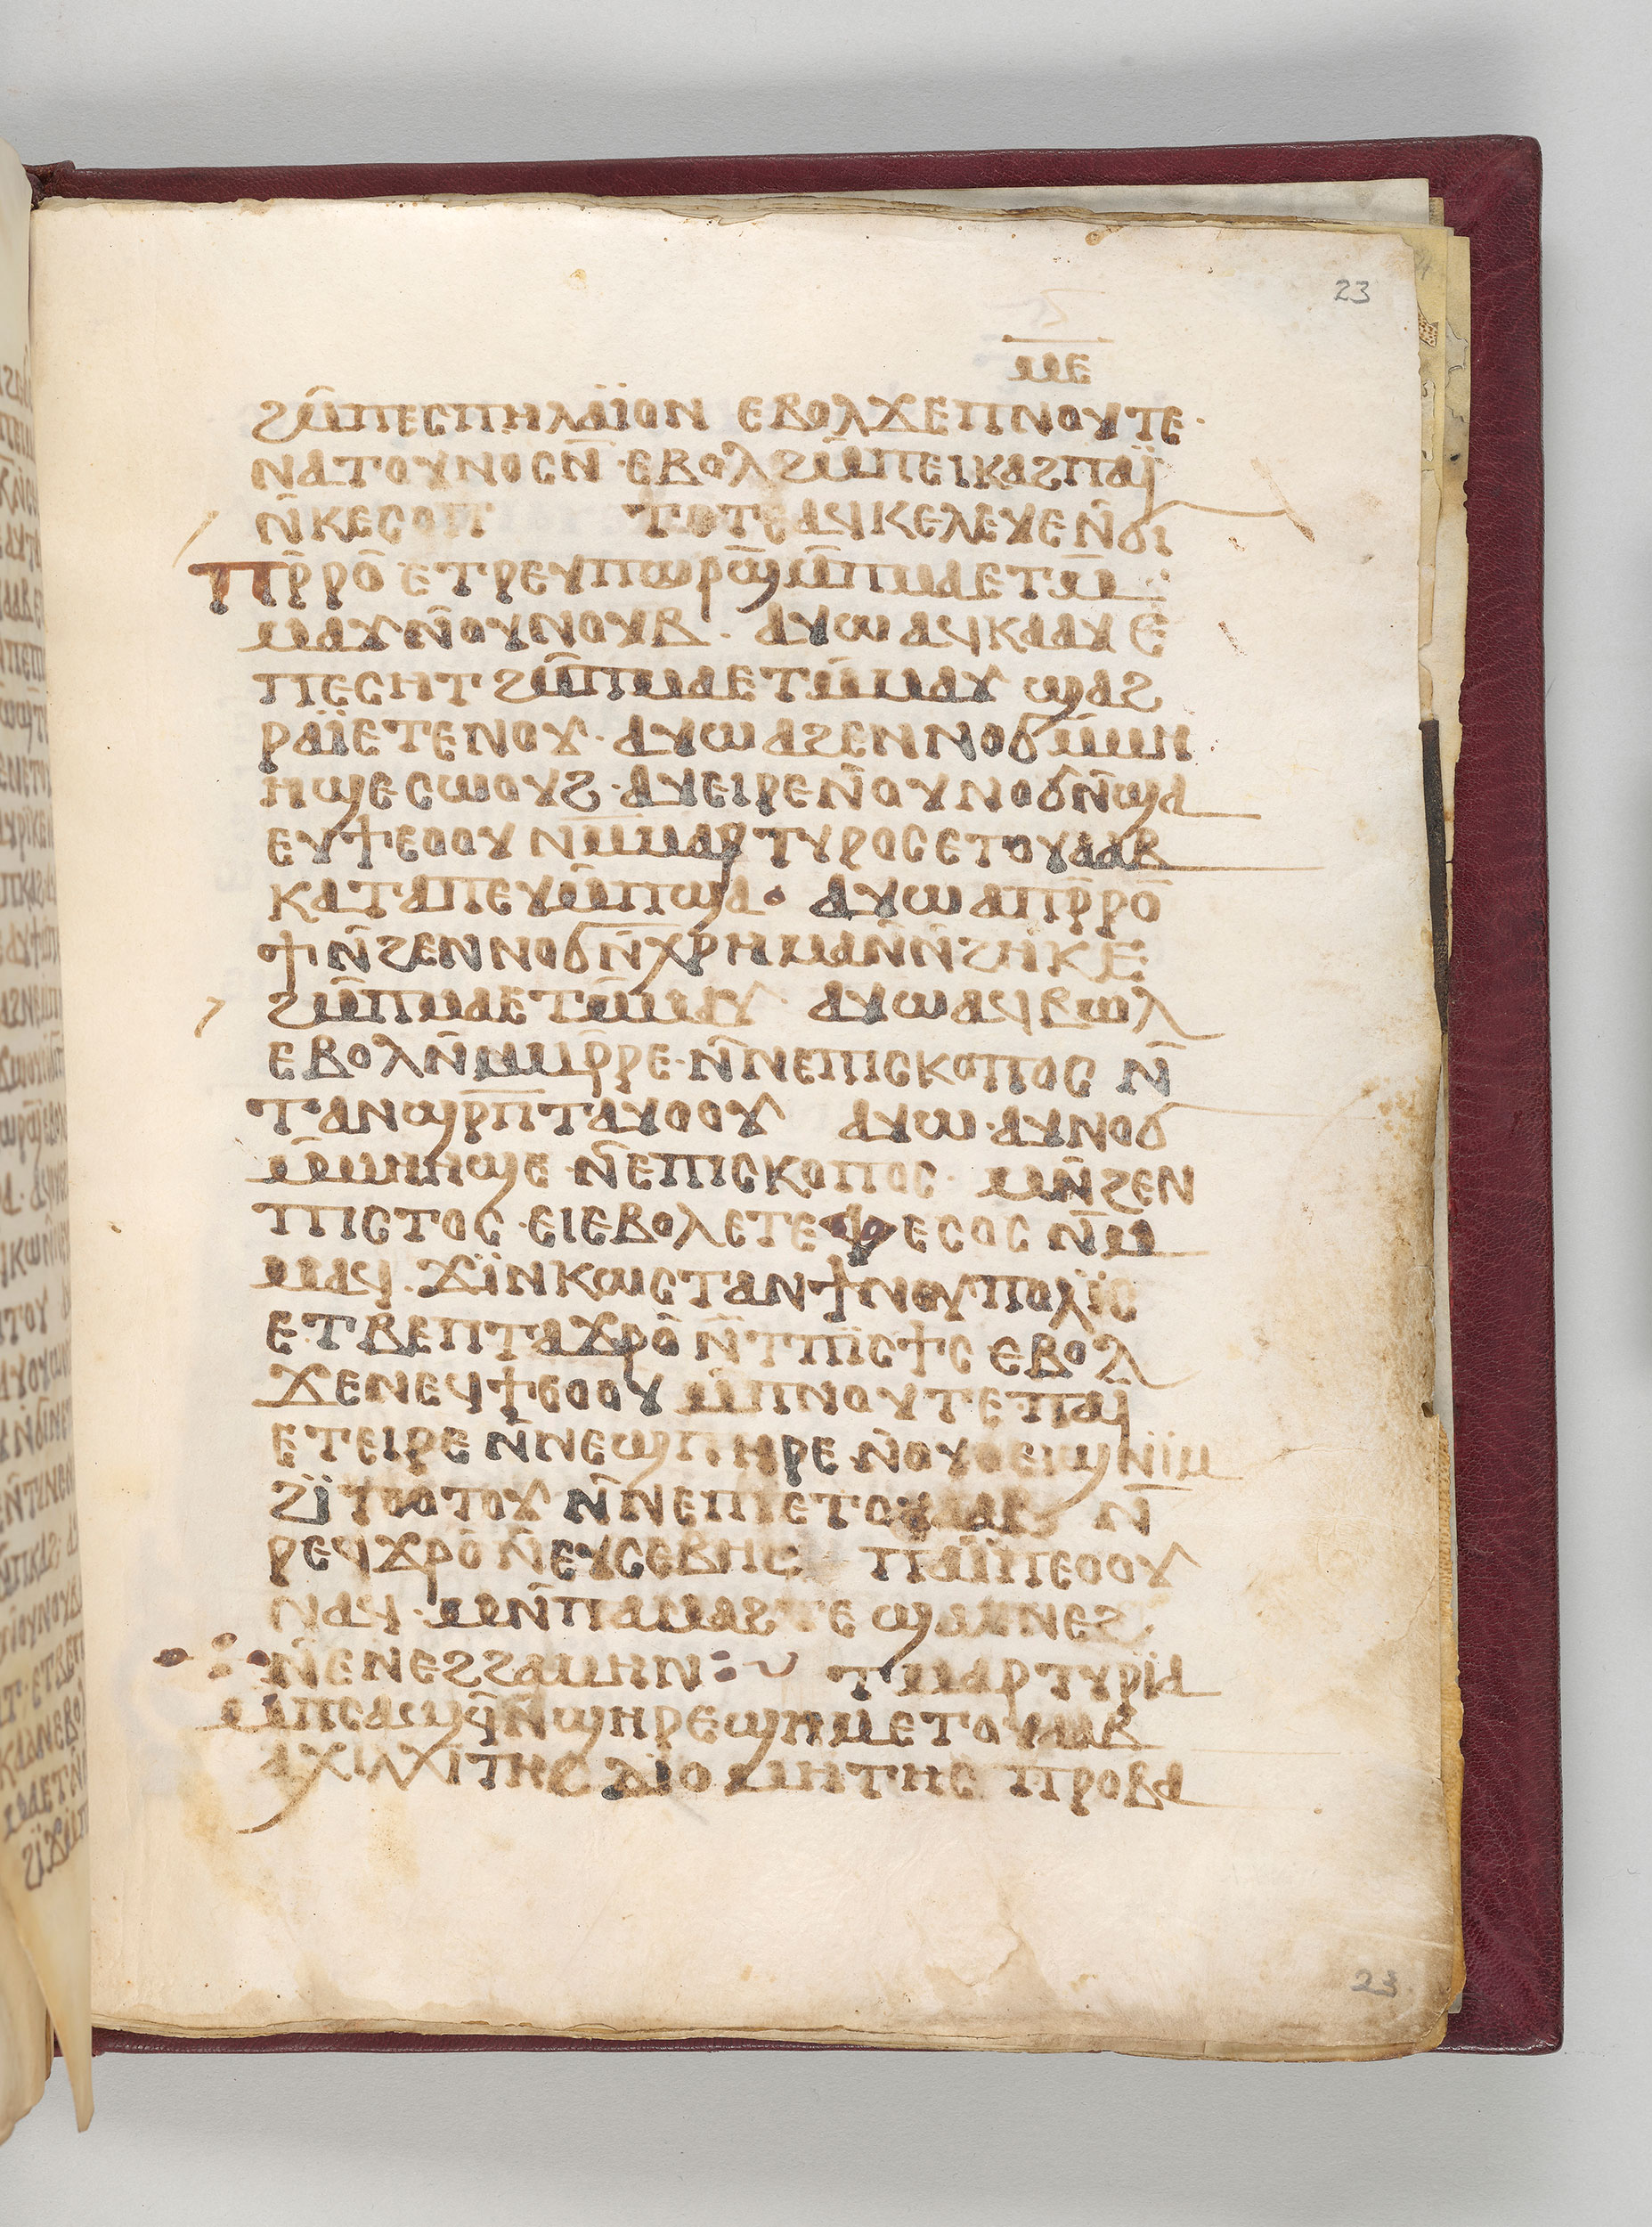 23
ⲙⲉ
ϩⲙ̄ⲡⲉⲥⲡⲏⲗⲁⲓ̈ⲟⲛ ⲉⲃⲟⲗϫⲉⲡⲛⲟⲩⲧⲉ·
ⲛⲁⲧⲟⲩⲛⲟⲥⲛ̄·ⲉⲃⲟⲗϩⲙ̄ⲡⲉⲓⲕⲁϩⲡⲁⲓ̈
ⲛ̄ⲕⲉⲥⲟⲡ ⲧⲟⲧⲉⲁϥⲕⲉⲗⲉⲩⲉⲛ̄ϭⲓ
ⲡⲣ̄ⲣⲟ̄ ⲉⲧⲣⲉⲩⲡⲱⲣϣ̄ⲙ̄ⲡⲙⲁⲉⲧⲙ̄
ⲙⲁⲩⲛ̄ⲟⲩⲛⲟⲩⲃ· ⲁⲩⲱⲁϥⲕⲁⲁⲩⲉ
ⲡⲉⲥⲏⲧϩⲙ̄ⲡⲙⲁⲉⲧⲙ̄ⲙⲁⲩ ϣⲁϩ
ⲣⲁⲓ̈ⲉⲧⲉⲛⲟⲩ· ⲁⲩⲱⲁϩⲉⲛⲛⲟϭⲙ̄ⲙⲏ
ⲏϣⲉⲥⲱⲟⲩϩ·ⲁⲩⲉⲓⲣⲉⲛ̄ⲟⲩⲛⲟϭⲛ̄ϣⲁ
ⲉⲩϯⲉⲟⲟⲩⲛⲙ̄ⲙⲁⲣⲧⲩⲣⲟⲥⲉⲧⲟⲩⲁⲁⲃ
ⲕⲁⲧⲁⲡⲉⲩⲙ̄ⲡϣⲁ· ⲁⲩⲱⲁⲡⲣ̄ⲣⲟ̄
ϯⲛ̄ϩⲉⲛⲛⲟϭⲛ̄ⲭⲣⲏⲙⲁⲛ̄ⲛ̄ϩⲏⲕⲉ
ϩⲙ̄ⲡⲙⲁⲉⲧⲙ̄ⲙⲁⲩ· ⲁⲩⲱⲁϥⲃⲱⲗ
ⲉⲃⲟⲗⲛ̄ⲙⲙⲣ̄ⲣⲉ·ⲛ̄ⲛⲉⲡⲓⲥⲕⲟⲡⲟⲥ ⲛ̄
ⲧⲁⲛϣⲣⲡ̄ⲧⲁⲩⲟⲟⲩ ⲁⲩⲱ·ⲁⲩⲛⲟϭ
ⲙ̄ⲙⲏⲏϣⲉ·ⲛ̄ⲉⲡⲓⲥⲕⲟⲡⲟⲥ· ⲙⲛ̄ϩⲉⲛ
ⲡⲓⲥⲧⲟⲥ·ⲉⲓⲉⲃⲟⲗⲉⲧⲉⲫⲉⲥⲟⲥ ⲛⲙ̄
ⲙⲁϥ·ϫⲓ̈ⲛⲕⲱⲥⲧⲁⲛϯⲛⲟⲩⲡⲟⲗⲓ̈ⲥ
ⲉⲧⲃⲉⲡⲧⲁϫⲣⲟ̄ ⲛ̄ⲧⲡⲓ̈ⲥϯⲥ ⲉⲃⲟⲗ
ϫⲉⲛⲉϥϯⲉⲟⲟⲩ ⲙ̄ⲡⲛⲟⲩⲧⲉ·ⲡⲁⲓ̈
ⲉⲧⲉⲓⲣⲉ ⲛ̄ⲛⲉϣⲡⲏⲣⲉ·ⲛ̄ⲟⲩⲟⲉⲓϣⲛⲓ̈ⲙ
ϩⲓ̈ⲧⲟⲟⲧⲟⲩ ⲛ̄ⲛⲉⲡⲉⲧⲟⲩⲁⲁⲃ ⲛ̄
ⲣⲉϥϫⲣⲟ̄ ⲛ̄ⲉⲩⲥⲉⲃⲏⲥ ⲡⲁⲓ̈ⲡⲉⲟⲟⲩ
ⲛⲁϥ·ⲙⲛ̄ⲡⲁⲙⲁϩⲧⲉ ϣⲁⲛⲉϩ
ⲛ̄ⲉⲛⲉϩϩⲁⲙⲏⲛ: ⲧⲙⲁⲣⲧⲩⲣⲓ̈ⲁ
ⲙ̄ⲡⲥⲁϣϥ̄ⲛ̄ϣⲏⲣⲉϣⲏⲙⲉⲧⲟⲩⲁⲁⲃ
ⲁⲭⲓⲗⲗⲓⲧⲏⲥ ⲇⲓ̈ⲟⲙⲏⲧⲏⲥ ⲡⲣⲟⲃⲁ
23